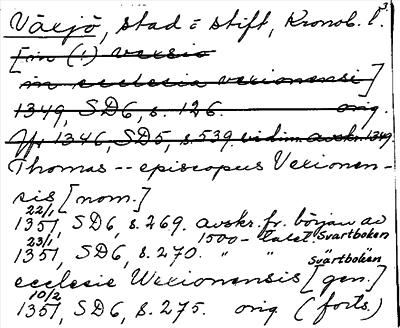 Växjö, stad o stift, Kronob. l. 3.
[in (!) vexsio
in ecclesia vexionensi]
1349, SD6, s. 126. orig.
Jfr 1346, SD5, s. 539. vidim. avskr. 1349.
Thomas -- episcopus Vexionen-
sis [nom.]
22/1 1351, SD6, s. 269. avskr. fr. början av 1500-talet. Svartboken
23/1 1351, SD6, s. 270. " " Svartboken
ecclesie Wexionensis [gen.]
10/2 1351, SD6, s. 275. orig (forts.)